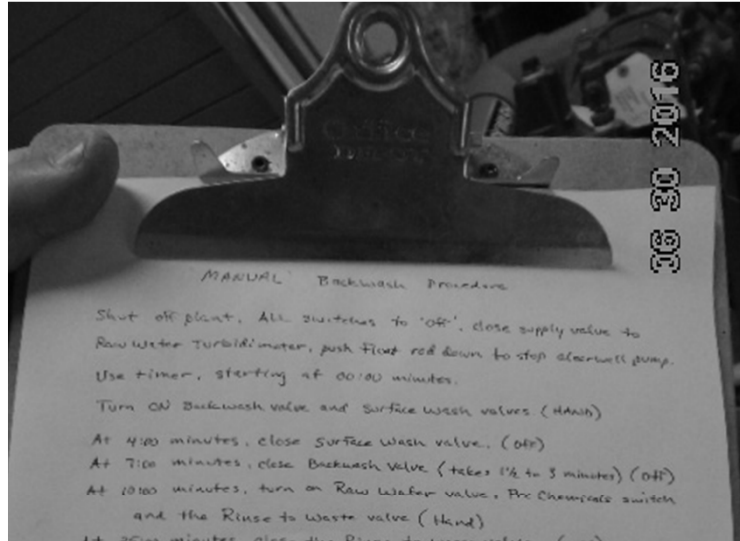 Office
08 30 2016
MANUAL Backwash Procedure
Shut off plant, ALL switches to 'off', close supply valve to
Raw Water Turbidimeter, push float rod down to stop clearwell pump.
Use timer, starting at 00:00 minutes.
Turn ON Backwash valve and Surface Wash valves (HAND)
At 4:00 minutes, close Surface Wash valve. (Off)
At 7:00 minutes, close Backwash Valve (takes 1½ to 3 minutes) (Off)
At 10:00 minutes, turn on Raw Water valve, Pre Chemicals switch
and the Rinse to Waste valve (Hand)
At minutes, close the Rinse to